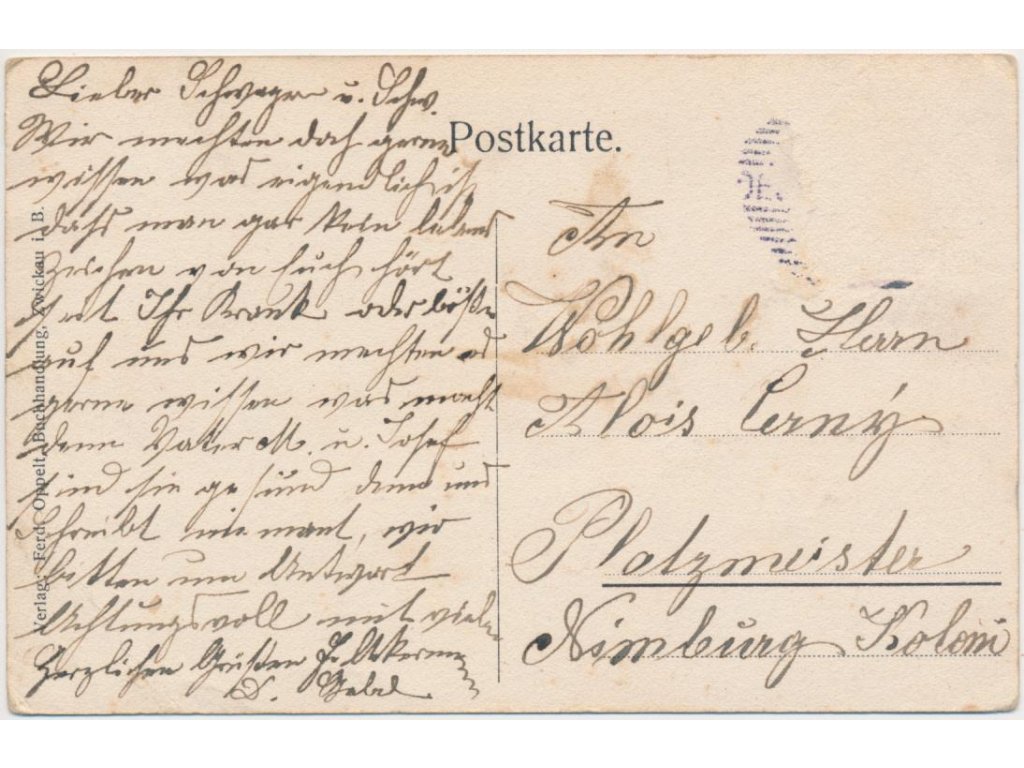 Lieber Schwager u. Schw.
Wir mechten doch gerne
wissen was eigendlich ist
dass man gar kein lebens
zeichen von Euch hört
seit Ihr Krank oder böße
auf uns wir mechten es
gerne wissen was macht
denn Vater M. u. Josef
sind sie gesund denn uns
schreibt niemant, wir
bitten um Antwort
Achtungsvoll mit vielen
Herzlichen Grüßen
Postkarte.
An
Wohlgeb. Herrn
Alois Černý
Platzmeister
Nimburg Koloni
Verlag: Ferd. Oppelt, Buchhandlung, Zwickau i. B.